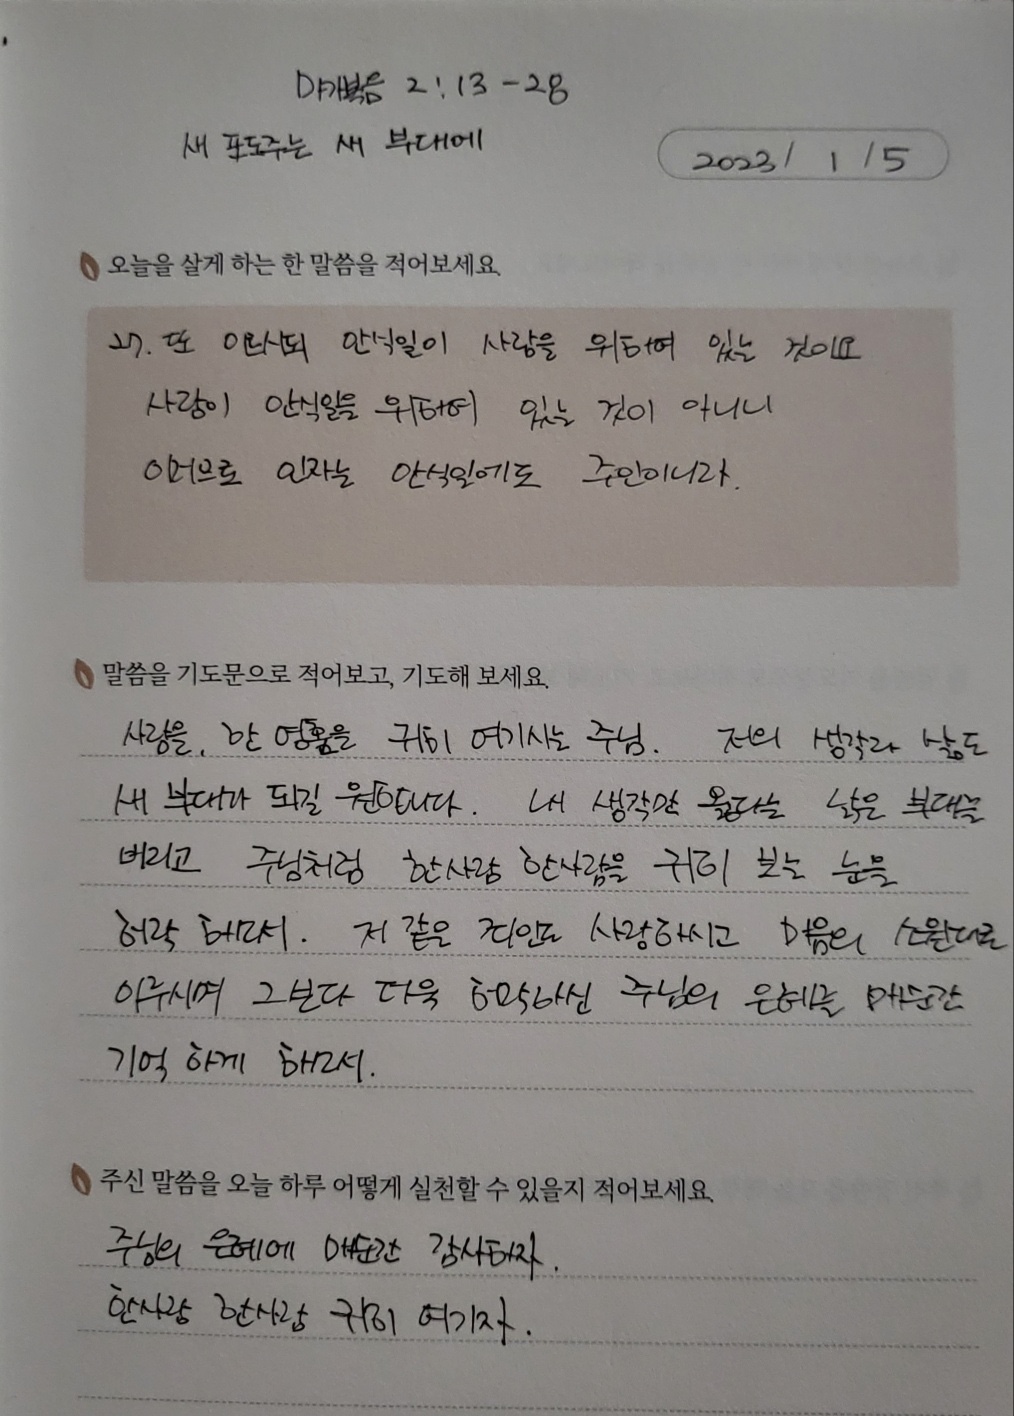 마가복음 2:13-28
새 포도주는 새 부대에
2023/ 1 /5
오늘을 살게 하는 한 말씀을 적어보세요.
27. 또 이르시되 안식일이 사람을 위하여 있는 것이요
사람이 안식일을 위하여 있는 것이 아니니
이러므로 인자는 안식일에도 주인이니라.
말씀을 기도문으로 적어보고, 기도해 보세요.
사람을, 한 영혼을 귀히 여기시는 주님. 저의 생각과 삶도
새 부대가 되길 원합니다. 내 생각만 옳다는 낡은 부대를
버리고 주님처럼 한사람 한사람을 귀히 보는 눈을
허락 해주서. 저 같은 죄인도 사랑하시고 마음의 소원대로
이루시며 그보다 더욱 허락하신 주님의 은혜를 매순간
기억 하게 해주서.
주신 말씀을 오늘 하루 어떻게 실천할 수 있을지 적어보세요.
주님의 은혜에 매순간 감사하자.
한사람 한사람 귀히 여기자.